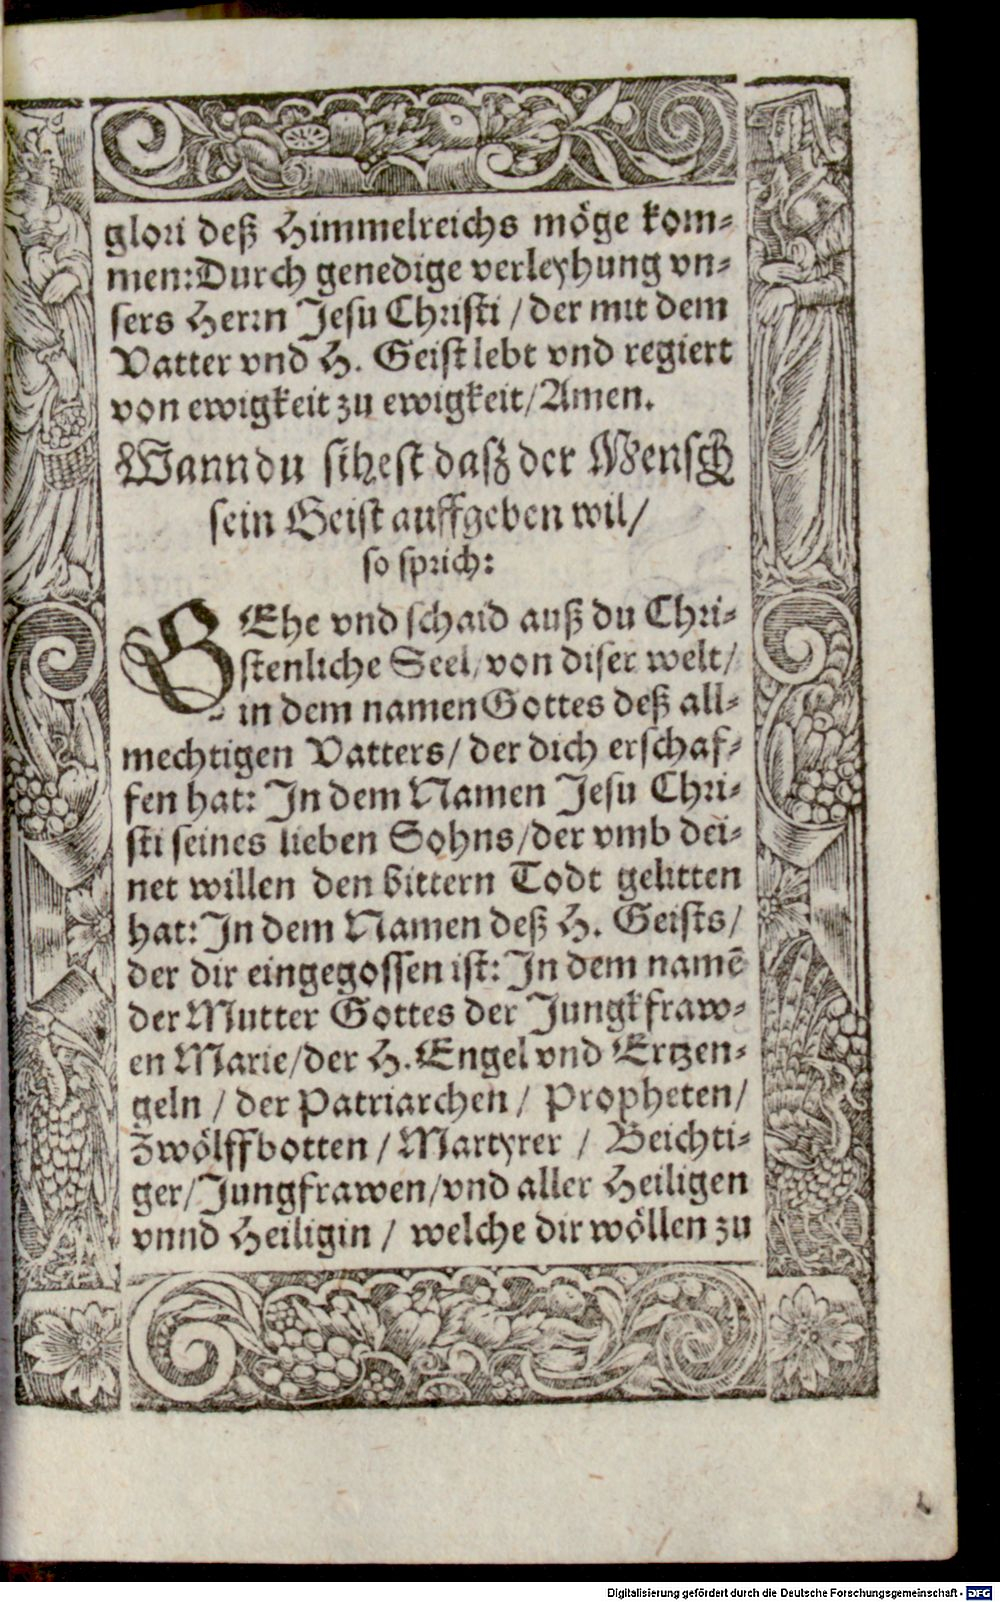 glori deß Himmelreichs möge kom-
men: Durch genedige verleyhung vn-
sers Herrn Jesu Christi / der mit dem
Vatter vnd H. Geist lebt vnd regiert
von ewigkeit zu ewigkeit / Amen.
Wann du sihest dasz der Mensch
sein Geist auffgeben wil /
so sprich:
GEhe vnd schaid auß du Chri-
stenliche Seel / von diser welt /
in dem namen Gottes deß all-
mechtigen Vatters / der dich erschaf-
fen hat: In dem Namen Jesu Chri-
sti seines lieben Sohns / der vmb dei-
net willen den bittern Todt gelitten
hat: In dem Namen deß H. Geists /
der dir eingegossen ist: In dem namē
der Mutter Gottes der Jungkfraw-
en Marie / der H. Engel vnd Ertzen-
geln / der Patriarchen / Propheten /
Zwölffbotten / Martyrer / Beichti-
ger / Jungfrawen / vnd aller Heiligen
vnnd Heiligin / welche dir wöllen zu
Digitalisierung gefördert durch die Deutsche Forschungsgemeinschaft - DFG